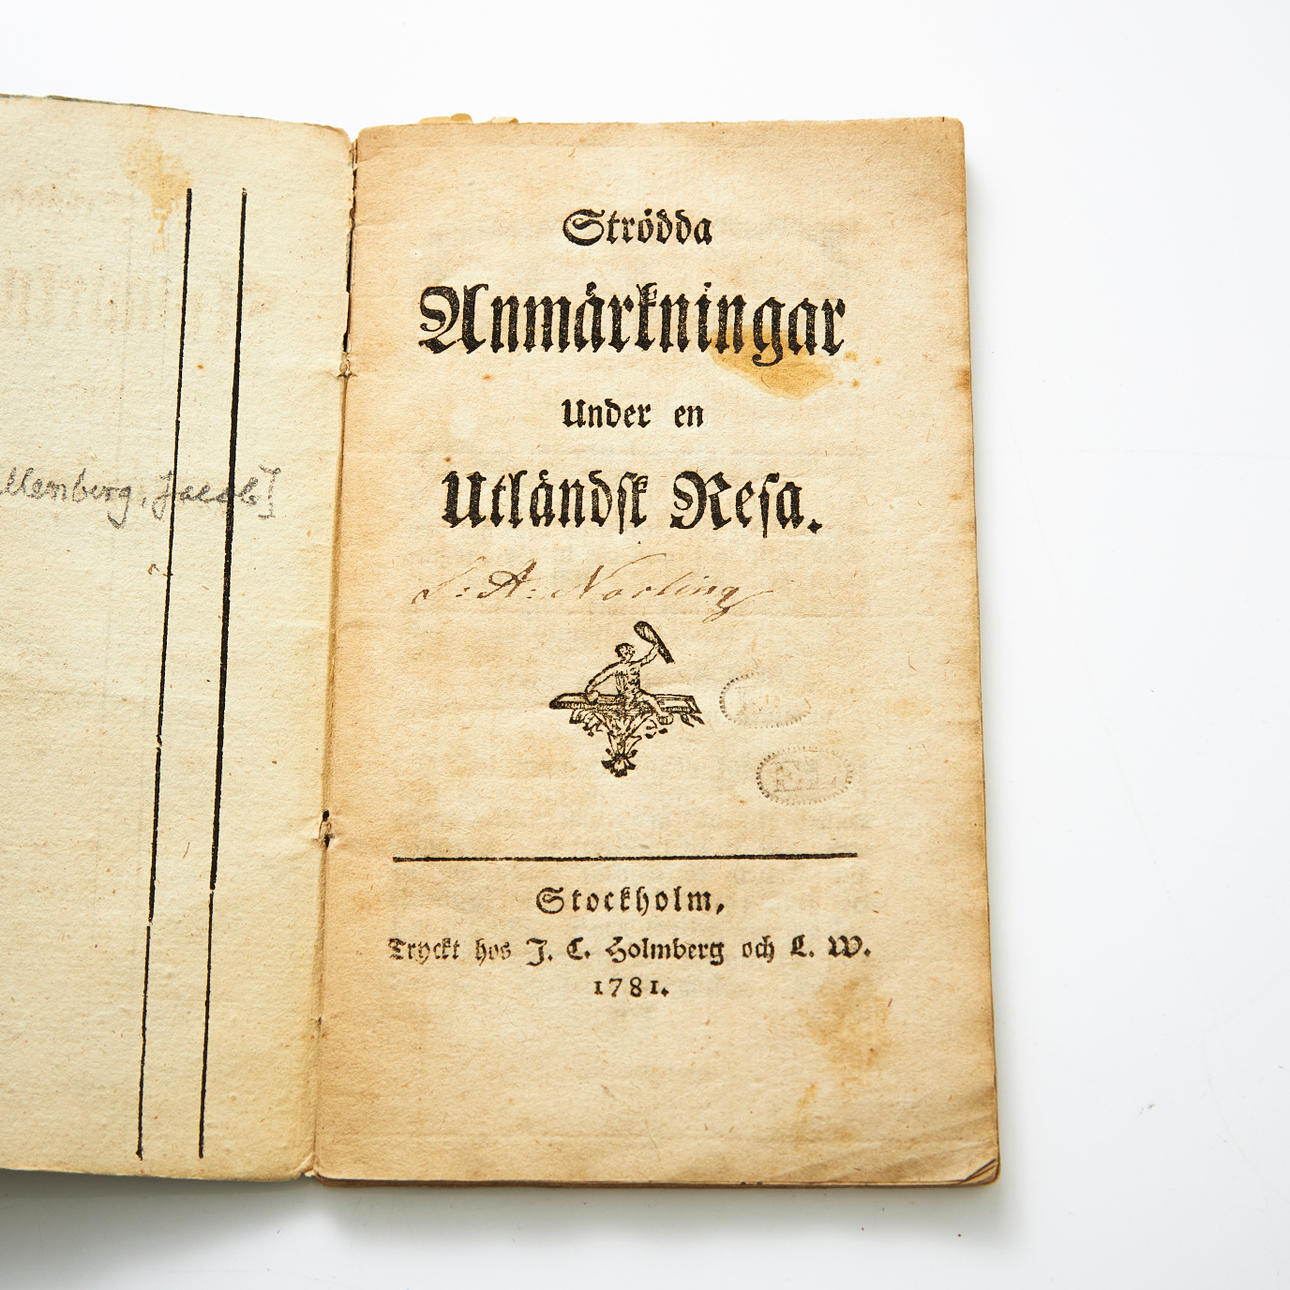 llenberg, Jacob]
Strödda
Anmärkningar
Under en
Utländsk Resa.
S: A: Norling
Stockholm,
Tryckt hos J. C. Holmberg och L. W.
1781.